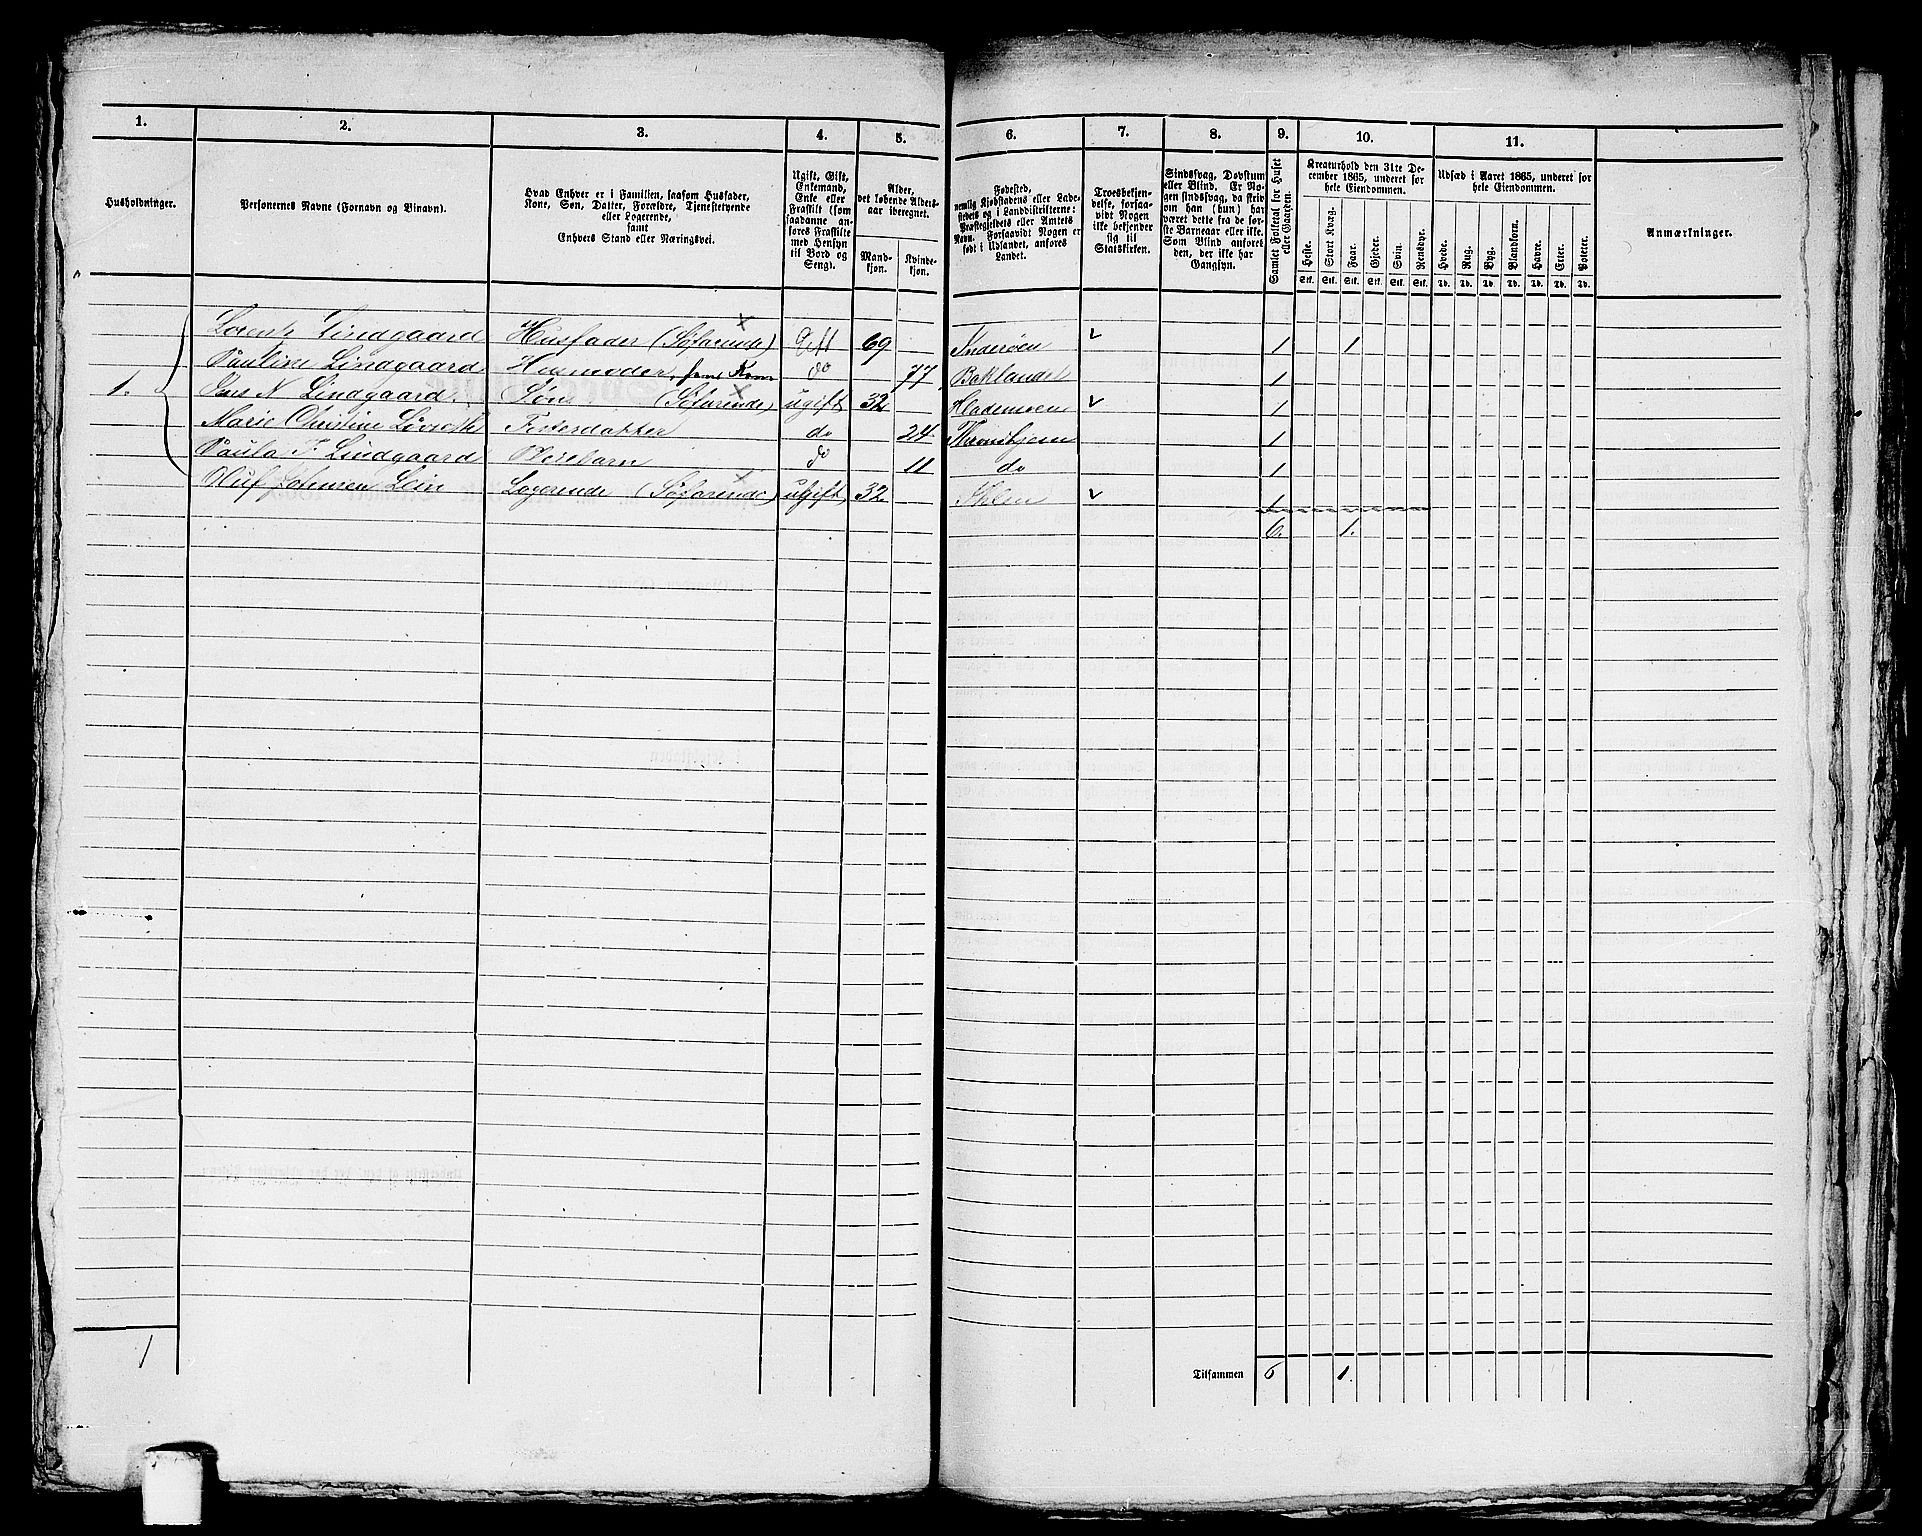 1. 2. 3. 4. 5. 6. 7. 8. 9. 10. 11.
Husholdninger.
Personernes Navne (Fornavn og Binavn).
Hvad Enhver er i Familien, saasom Husfader,
Kone, Søn, Datter, Forældre, Tjenestetyende
eller Logerende,
samt
Enhvers Stand eller Næringsvei.
Ugift, Gift,
Enkemand,
Enke eller
Fraskilt (som
saadanne an-
føres Fraskilte
med Hensyn
til Bord og
Seng).
Alder,
det løbende Alders-
aar iberegnet.
Mand-
kjøn.
Kvinde-
kjøn.
Fødested,
nemlig Kjøbstadens eller Lade-
stedets og i Landdistrikterne:
Præstegjeldets eller Amtets
Navn. Forsaavidt Nogen er
født i Udlandet, anføres
Landet.
Troesbekjen-
delse, forsaa-
vidt Nogen
ikke bekjender
sig til
Statskirken.
Sindssvag, Døvstum
eller Blind. Er No-
gen sindssvag, da skriv
om han (hun) har
været dette fra de før-
ste Barneaar eller ikke.
Som Blind anføres
den, der ikke har
Gangsyn.
Samlet Folketal for Huset
eller Gaarden.
Kreaturhold den 31te De-
cember 1865, underet for
hele Eiendommen.
Heste. Stort Kvæg. Faar. Gjeder. Svin. Rensdyr.
Stk. Stk. Stk. Stk. Stk. Stk.
Udsæd i Aaret 1865, underet for
hele Eiendommen.
Hvede. Rug. Byg. Blandkorn. Havre. Erter. Poteter.
Td. Td. Td. Td. Td. Td. Td.
Anmærkninger.
Lorentz Lindgaard Husfader (Søfarende) Gift 69 Inderøen 1 1
Pauline Lindgaard Husmoder, Kone do 77 Baklandet 1
1. Jens N. Lindgaard Søn (Søfarende) ugift 32 Hademoen 1
Marie Christine Do 24 Throndhjem 1
Paula Lindgaard Pleiebarn do 11 do 1
Oluf Johnsen Lein Logerende (Søfarende) ugift 32 1
6. 1.
1
Tilsammen 6 1.